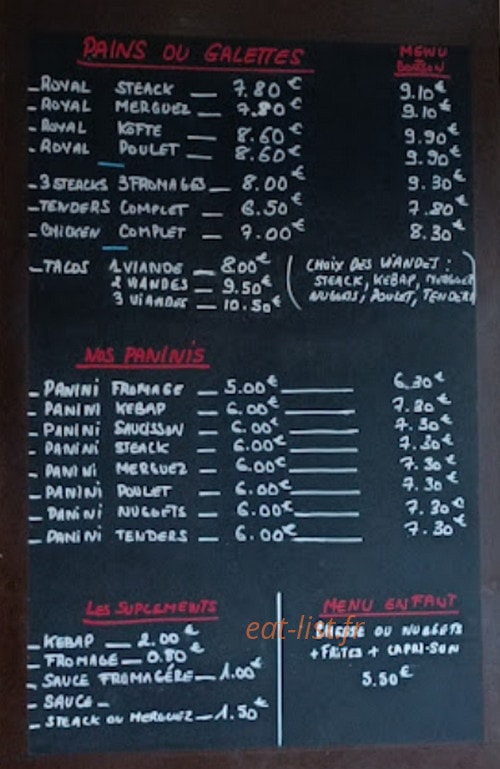 PAINS OU GALETTES MENU BOISSON
- ROYAL STEACK — 7.80€ 9.10€
- ROYAL MERGUEZ — 7.80€ 9.10€
- ROYAL KÖFTE — 8.60€ 9.90€
- ROYAL POULET — 8.60€ 9.90€
- 3 STEACKS 3 FROMAGES — 8.00€ 9.30€
- TENDERS COMPLET — 6.50€ 7.80€
- CHICKEN COMPLET — 7.00€ 8.30€
- TACOS 1 VIANDE — 8.00€ ( CHOIX DES VIANDES :
2 VIANDES — 9.50€ STEACK, KEBAP, MERGUEZ
3 VIANDES — 10.50€ NUGGETS, POULET, TENDERS
NOS PANINIS
- PANINI FROMAGE — 5.00€ 6.30€
- PANINI KEBAP — 6.00€ 7.30€
- PANINI SAUCISSON — 6.00€ 7.30€
- PANINI STEACK — 6.00€ 7.30€
- PANINI MERGUEZ — 6.00€ 7.30€
- PANINI POULET — 6.00€ 7.30€
- PANINI NUGGETS — 6.00€ 7.30€
- PANINI TENDERS — 6.00€ 7.30€
LES SUPLEMENTS
- KEBAP — 2.00€
- FROMAGE — 0.80€
- SAUCE FROMAGÈRE — 1.00€
- SAUCE -
- STEACK OU MERGUEZ — 1.50€
MENU ENFANT
CHEESE OU NUGGETS
+ FRITES + CAPRI-SUN
5.50€
eat-list.fr